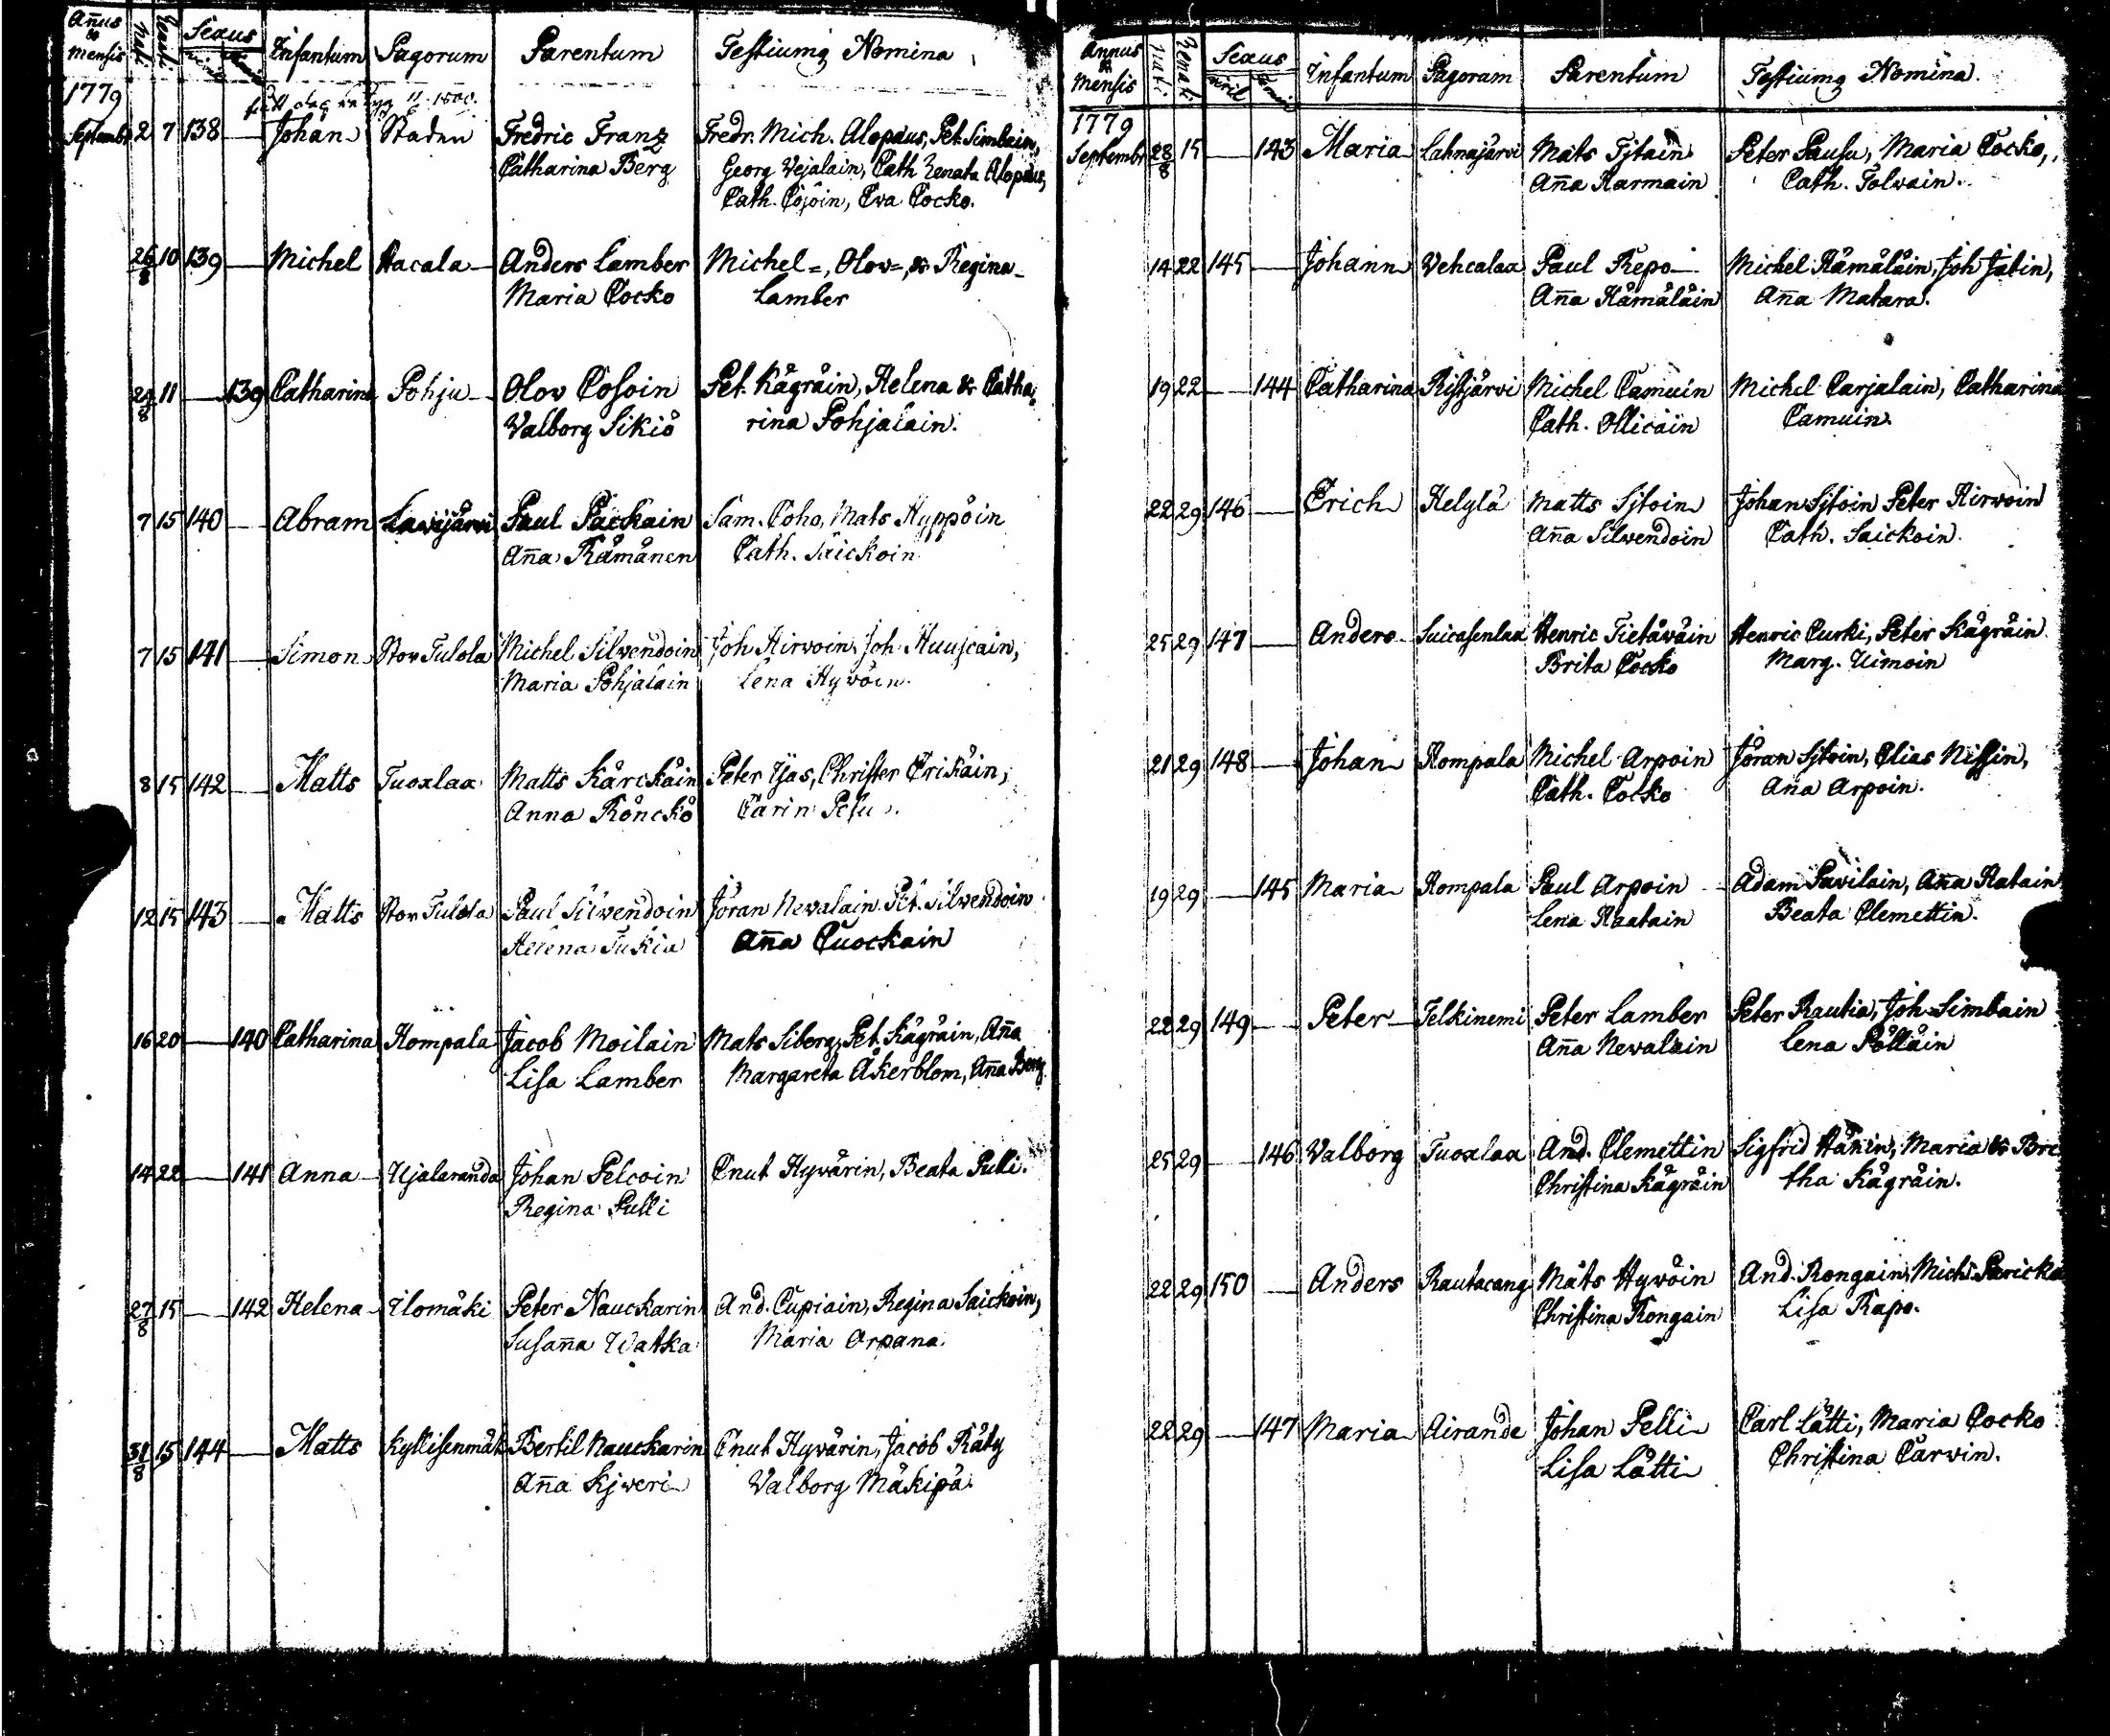 Añus & mensis Nati Renati Sexus Infantum Pagorum Parentum Testiumq Nomina
1779
Septembr 2 7 138 — Johan Staden Fredric Franz Fredr. Mich. Alopæus, Pet. Simbain,
Catharina Berg Georg Vejalain, Cath Renata Alopæus,
Cath. Cojoin, Eva Cocko.
26/8 10 139 — Michel Hacala Anders Lamber Michel =, Olov =, & Regina
Maria Cocko Lamber
29/8 11 — 139 Catharina Pohju Olov Cosoin Pet. Kägräin, Helena & Catha
Valborg Sikiö rina Pohjalain.
7 15 140 — Abram Lavijärvi Paul Packain Sam. Coho, Mats Hyppöin
Aña Rämänen Cath. Saickoin
7 15 141 — Simon Stor Tulola Michel Silvendoin Joh Hirvoin, Joh. Huuscain,
Maria Pohjalain Lena Hyvöin.
8 15 142 — Matts Tuoxlax Matts Kärckäin Peter Ijas, Christer Erikäin,
Anna Rönckö Carin Pesu.
12 15 143 — Matts Stor Tulola Paul Silvendoin Jöran Nevalain Pet. Silvendoin
Helena Tukia Aña Cuockain
16 20 — 140 Catharina Hompala Jacob Moilain Mats Siberg, Pet. Kägräin, Aña
Lisa Lamber Margareta Åkerblom, Aña Berg
14 22 — 141 Anna Ujalaranda Johan Pelcoin Cnut Hyvärin, Beata Pulli.
Regina Pulli
27/8 15 — 142 Helena Ilomäki Peter Nauckarin And. Cupiain, Regina Saickoin,
Susaña Watka Maria Arpana.
31/8 15 144 — Matts Kyllisenmäk Bertil Nauckarin Cnut Hyvärin, Jacob Räty
Aña Kjweri Valborg Mäkipä.
Annus & Mensis Nati Renati Sexus Infantum Pagorum Parentum Testiumq Nomina.
1779
Septembr 28/8 15 — 143 Maria Lahnajärvi Mats Tjtain Peter Pausu, Maria Cocko,
Aña Karmain Cath. Tolvain.
14 22 145 — Johann Vehcalax Paul Repo Michel Hämäläin, Joh Jatin,
Aña Hämäläin Aña Matara.
19 22 — 144 Catharina Ristjärvi Michel Camuin Michel Carjalain, Catharina
Cath. Ollicain Camuin.
22 29 146 — Erich Helylä Matts Sjtoin Johan Sjtoin Peter Hirvoin
Aña Silvendoin Cath. Saickoin.
25 29 147 — Anders Suicasenlax Henric Tietäväin Henric Curki, Peter Kägräin
Brita Cocko Marg. Uimoin
21 29 148 — Johan Hompala Michel Arpoin Jöran Sjtoin, Elias Nissin,
Cath. Cocko Ana Arpoin.
19 29 — 145 Maria Hompala Paul Arpoin Adam Savilain, Aña Ratain
Lena Raatain Beata Clemettin.
22 29 149 — Peter Telkinemi Peter Lamber Peter Rautia, Joh Simbain
Aña Nevalain Lena Pölläin
25 29 — 146 Valborg Tuoxlax And. Clemettin Sigfrid Häkin, Maria & Bri
Christina Kägräin tha Kägräin.
22 29 150 — Anders Rautacang Mats Hyvöin And. Rongain, Mich. Paricka
Christina Rongain Lisa Rapo.
22 29 — 147 Maria Airande Johan Pelli Carl Lätti, Maria Cocko
Lisa Lätti Christina Carvin.